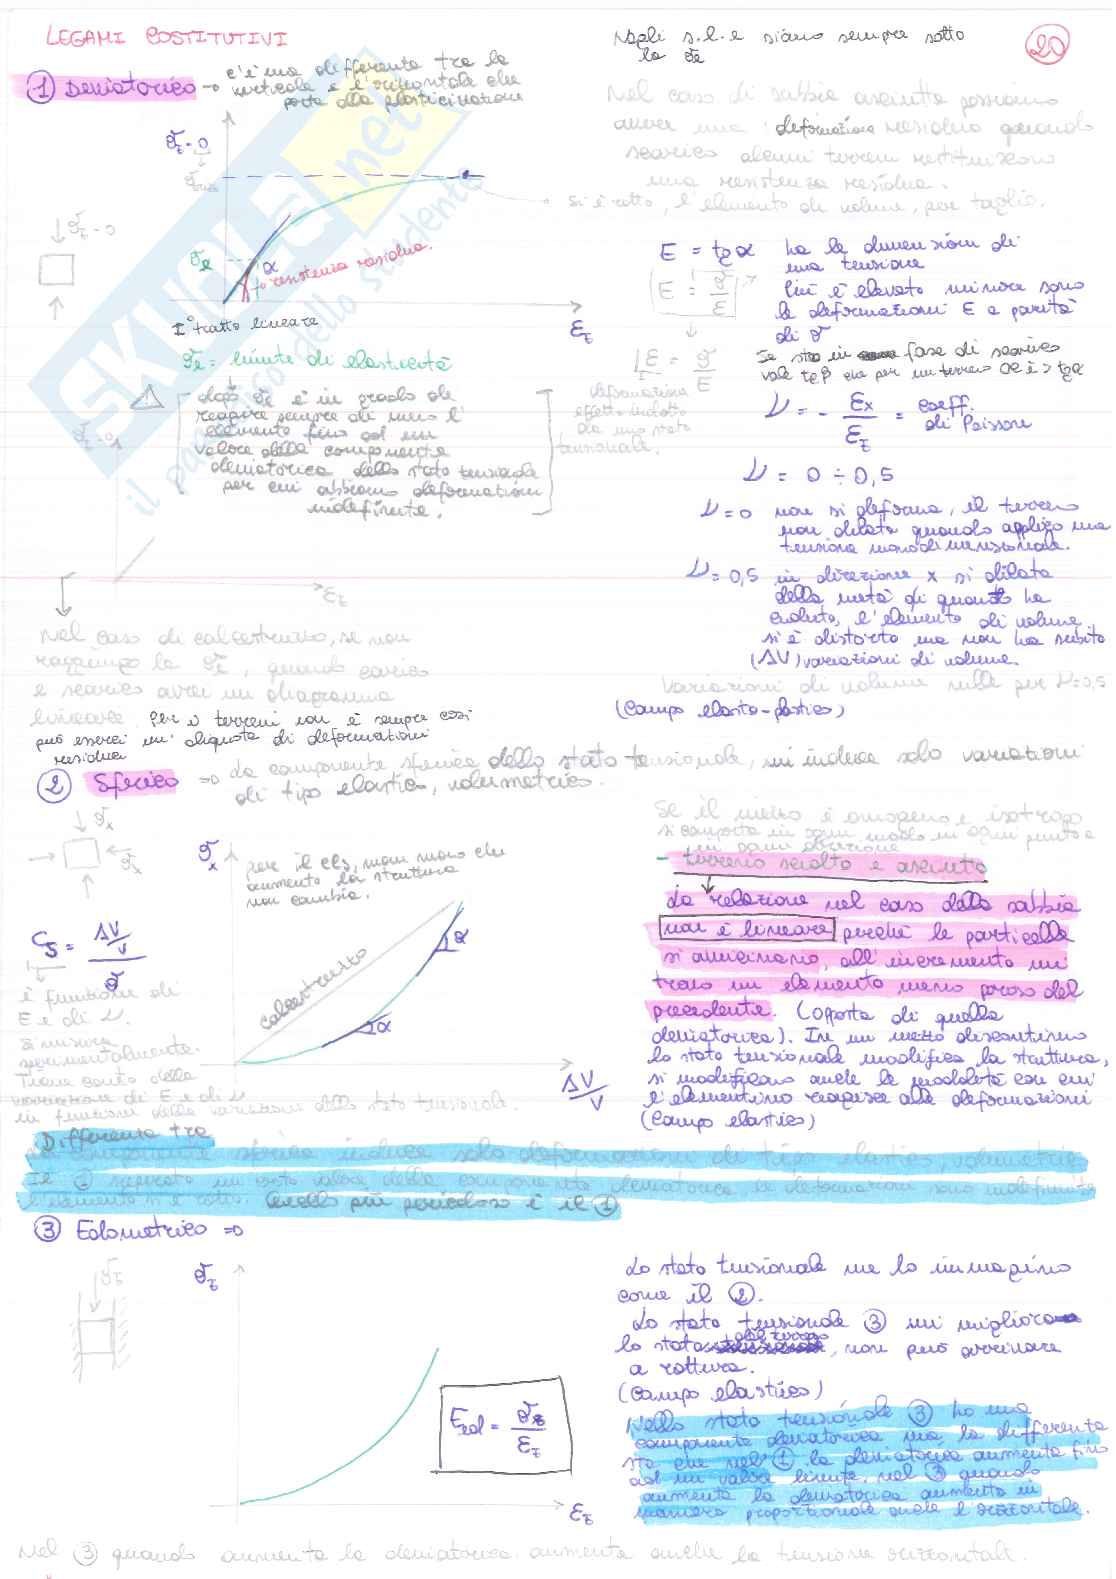 LEGAMI COSTITUTIVI
Negli s.l.e siamo sempre sotto
la σe
20
① Deviatorico → c'è una differenza tra la
verticale e l'orizzontale che
porta alla plasticizzazione
Nel caso di sabbia asciutta possiamo
avere una deformazione residua quando
scarico alcuni terreni restituiscono
una resistenza residua.
si è rotto, l'elemento di volume, per taglio.
σz - 0
σz - 0
σe
α
resistenza residua.
εz
I° tratto lineare
σe = limite di elasticità
dopo σe è in grado di
reagire sempre di meno l'
elemento fino ad un
valore della componente
deviatorica dello stato tensionale
per cui abbiamo deformazioni
indefinite.
εz
E = tgα ha le dimensioni di
una tensione
E = σ/ε più è elevato minore sono
le deformazioni ε a parità
di σ
ε = σ/E
deformazione
effetto indotto
da uno stato
tensionale.
Se sto in fase di scarico
vale tgβ che per un terreno OC è > tgα
ν = - εx/εz = coeff. di Poisson
ν = 0 ÷ 0,5
ν = 0 non si deforma, il terreno
non dilata quando applico una
tensione monodimensionale.
ν = 0,5 in direzione x si dilata
della metà di quanto ha
ceduto, l'elemento di volume
si è distorto ma non ha subito
(ΔV) variazioni di volume.
Variazioni di volume nulle per ν=0,5
(Campo elasto-plastico)
Nel caso di calcestruzzo, se non
raggiungo la σe, quando carico
e scarico avrei un diagramma
lineare. Per i terreni non è sempre così
può esserci un'aliquota di deformazioni
residua
② Sferico ⇒ La componente sferica dello stato tensionale, mi induce solo variazioni
di tipo elastico, volumetrico.
σx
σx
σx
per il cls, man mano che
aumento la struttura
non cambia.
calcestruzzo
α
α
ΔV/V
Cs = ΔV/V / σ
è funzione di
E e di ν.
Si misura
sperimentalmente.
Tiene conto della
variazione di E e di ν
in funzione della variazione dello stato tensionale.
Se il mezzo è omogeneo e isotropo
si comporta in ogni modo in ogni punto e
in ogni direzione
- terreno sciolto e asciutto
La relazione nel caso della sabbia
non è lineare perché le particelle
si avvicinano, all'incremento mi
trovo un elemento meno poroso del
precedente. (opposta di quella
deviatorica). In un mezzo discontinuo
lo stato tensionale modifica la struttura,
si modificano anche le modalità con cui
l'elementino reagisce alle deformazioni
(Campo elastico)
Differenza tra
componente sferica induce solo deformazioni di tipo elastico, volumetrico
Il ① superato un certo valore della componente deviatorica le deformazioni sono indefinite
l'elemento si è rotto. Quello più pericoloso è il ①
③ Edometrico ⇒
σz
σz
Eed = σz/εz
εz
Lo stato tensionale me lo immagino
come il ②.
Lo stato tensionale ③ mi migliora
lo stato del terreno, non può arrivare
a rottura.
(Campo elastico)
Nello stato tensionale ③ ho una
componente deviatorica ma la differenza
sta che nel ① la deviatorica aumenta fino
ad un valore limite, nel ③ quando
aumenta la deviatorica aumenta in
maniera proporzionale anche l'orizzontale.
Nel ③ quando aumenta la deviatorica, aumenta anche la tensione orizzontale.
SKUOLA.net
il paradiso dello studente